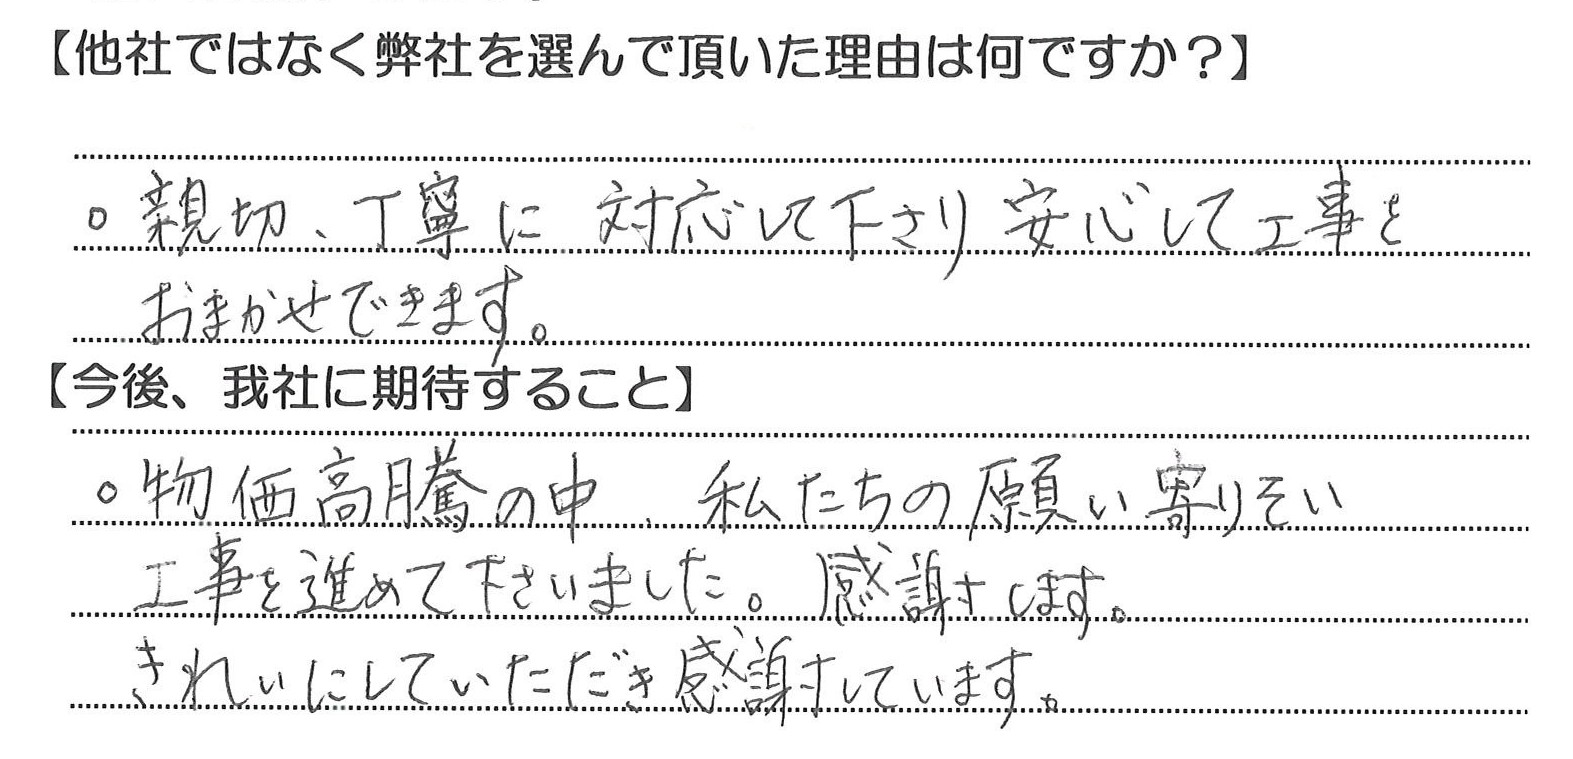 【他社ではなく弊社を選んで頂いた理由は何ですか？】
○ 親切、丁寧に 対応して下さり 安心して工事を
おまかせできます。
【今後、我社に期待すること】
○ 物価高騰の中、私たちの願い寄りそい
工事を進めて下さいました。感謝します。
きれいにしていただき感謝しています。